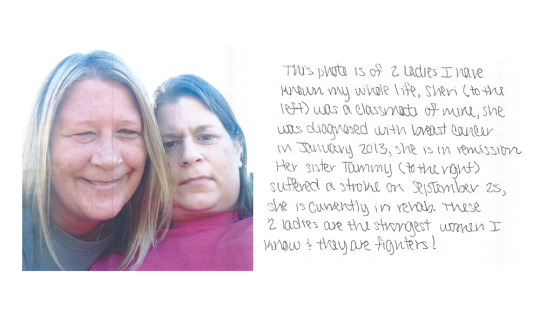 This photo is of 2 ladies I have
known my whole life, Sheri (to the
left) was a classmate of mine, she
was diagnosed with breast cancer
in January 2013, she is in remission
Her sister Tammy (to the right)
suffered a stroke on September 25,
she is currently in rehab. These
2 ladies are the strongest women I
know & they are fighters!